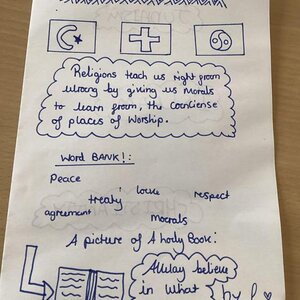 Religions teach us right from
wrong by giving us morals
to learn from, the conciense
of places of Worship.
Word BANK!:
Peace
treaty
love
respect
agreement
morals
A picture of A holy Book:
Allway believe
in what